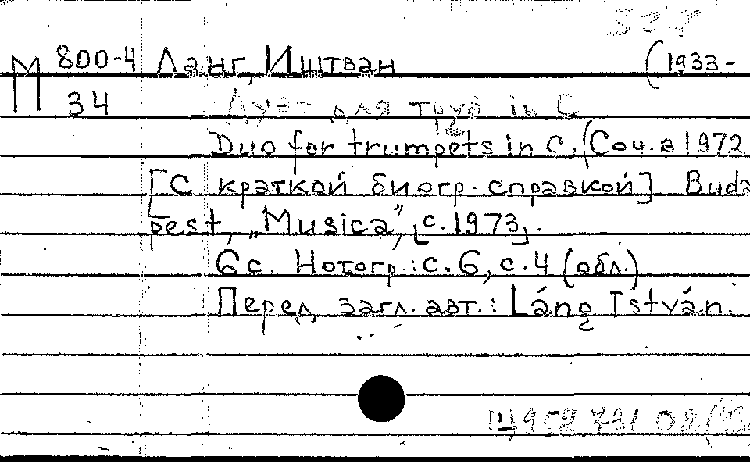 М 800-4 Ланг, Иштван (1933-
34 Дуэт для труб in C
Duo for trumpets in C. (Соч. в 1972
[С краткой биогр. справкой]. Buda
pest, „Musica”, [с. 1973].
6 с. Нотогр.: с. 6, с. 4 (обл.)
Перед загл. авт.: Láng István.